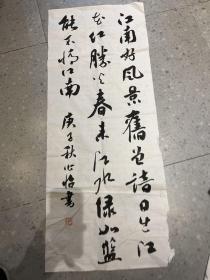 江南好风景旧曾谙日出江
花红胜火春来江水绿如蓝
能不忆江南
庚子秋 书